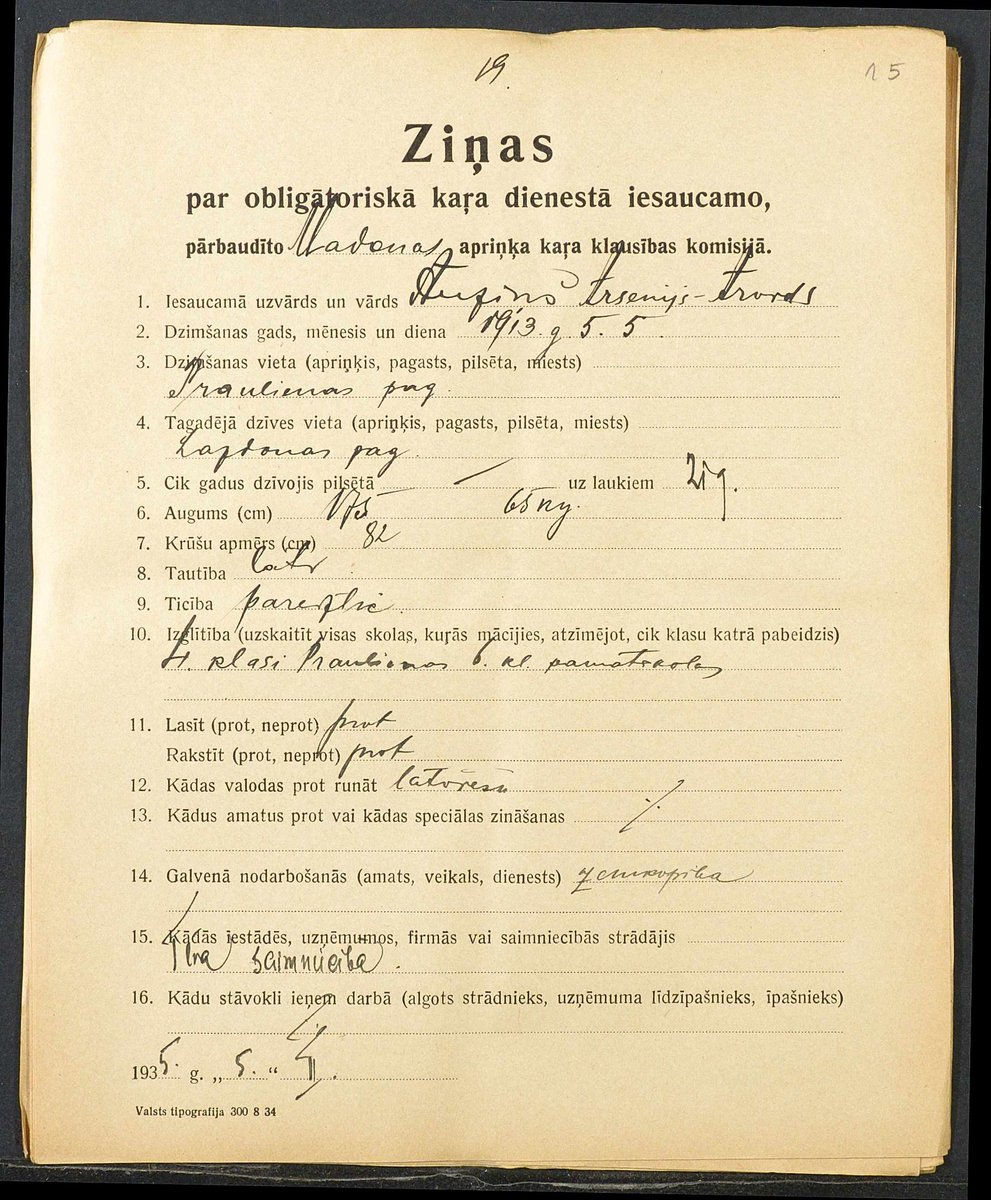 19.
15
Ziņas
par obligātoriskā kaŗa dienestā iesaucamo,
pārbaudīto Madonas apriņķa kaŗa klausības komisijā.
1. Iesaucamā uzvārds un vārds Arsenijs-Arvids
2. Dzimšanas gads, mēnesis un diena 1913. g 5. 5
3. Dzimšanas vieta (apriņķis, pagasts, pilsēta, miests)
Praulienas pag.
4. Tagadējā dzīves vieta (apriņķis, pagasts, pilsēta, miests)
Lazdonas pag.
5. Cik gadus dzīvojis pilsētā — uz laukiem 21 g.
6. Augums (cm) 175 65 kg.
7. Krūšu apmērs (cm) 82
8. Tautība latv
9. Ticība pareiztic.
10. Izglītība (uzskaitīt visas skolas, kuŗās mācījies, atzīmējot, cik klasu katrā pabeidzis)
4. klasi Praulienas 6. kl. pamatskolas
11. Lasīt (prot, neprot) prot
Rakstīt (prot, neprot) prot
12. Kādas valodas prot runāt latviešu
13. Kādus amatus prot vai kādas speciālas zināšanas ./.
14. Galvenā nodarbošanās (amats, veikals, dienests) zemkopība
15. Kādās iestādēs, uzņēmumos, firmās vai saimniecībās strādājis
Tēva saimniecībā.
16. Kādu stāvokli ieņem darbā (algots strādnieks, uzņēmuma līdzīpašnieks, īpašnieks)
./.
1935. g. „ 5. “
Valsts tipografija 300 8 34